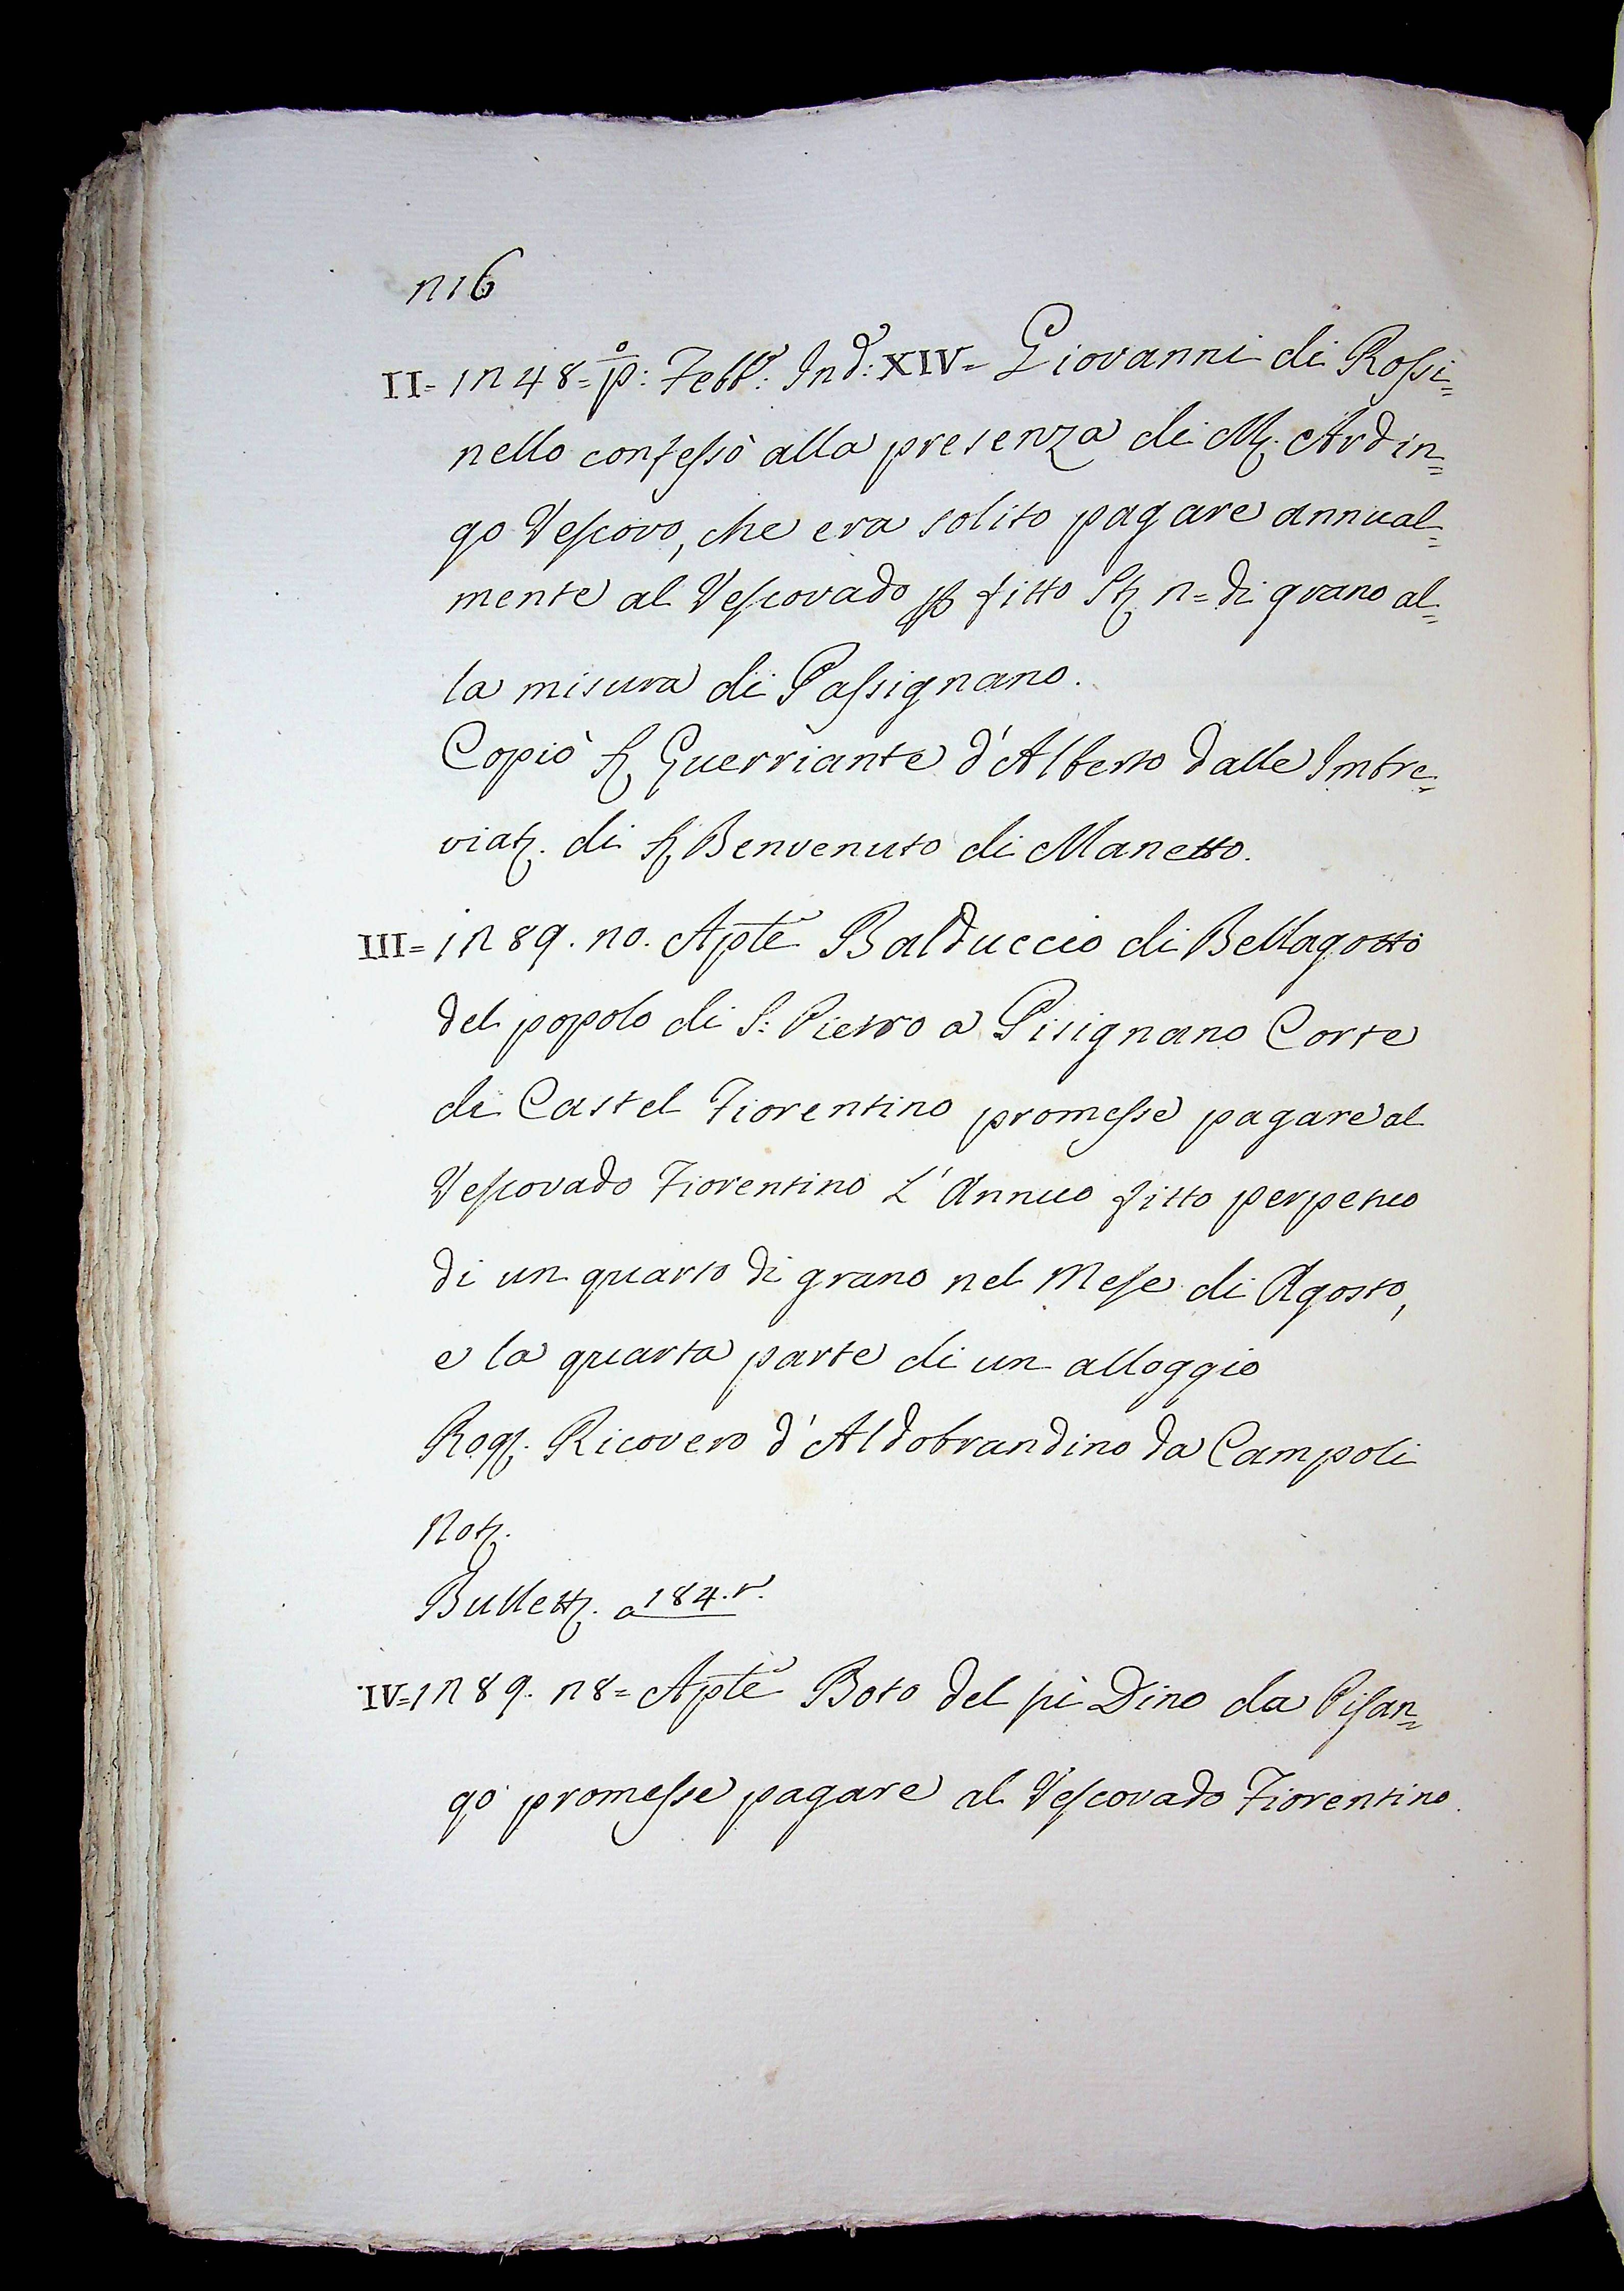 216
II= 1248= p.º: Febb.º: Ind: XIV= Giovanni di Rossi=
nello confessò alla presenza di M. Ardin=
go Vescovo, che era solito pagare annual=
mente al Vescovado p fitto St 2= di grano al=
la misura di Passignano.
Copiò S. Guerriante d'Alberto dalle Imbre=
viat. di S. Benvenuto di Manetto.
III= 1289. 20. Aple Balduccio di Bellagotto
del popolo di S: Pietro a Pisignano Corte
di Castel Fiorentino promesse pagare al
Vescovado Fiorentino L'Annuo fitto perpetuo
di un quarto di grano nel Mese di Agosto,
e la quarta parte di un alloggio
Rog. Ricovero d'Aldobrandino da Campoli
Not.
Bullett. a 184. r.
IV= 1289. 28= Aple Boto del ſi Dino da Pisan=
go promesse pagare al Vescovado Fiorentino